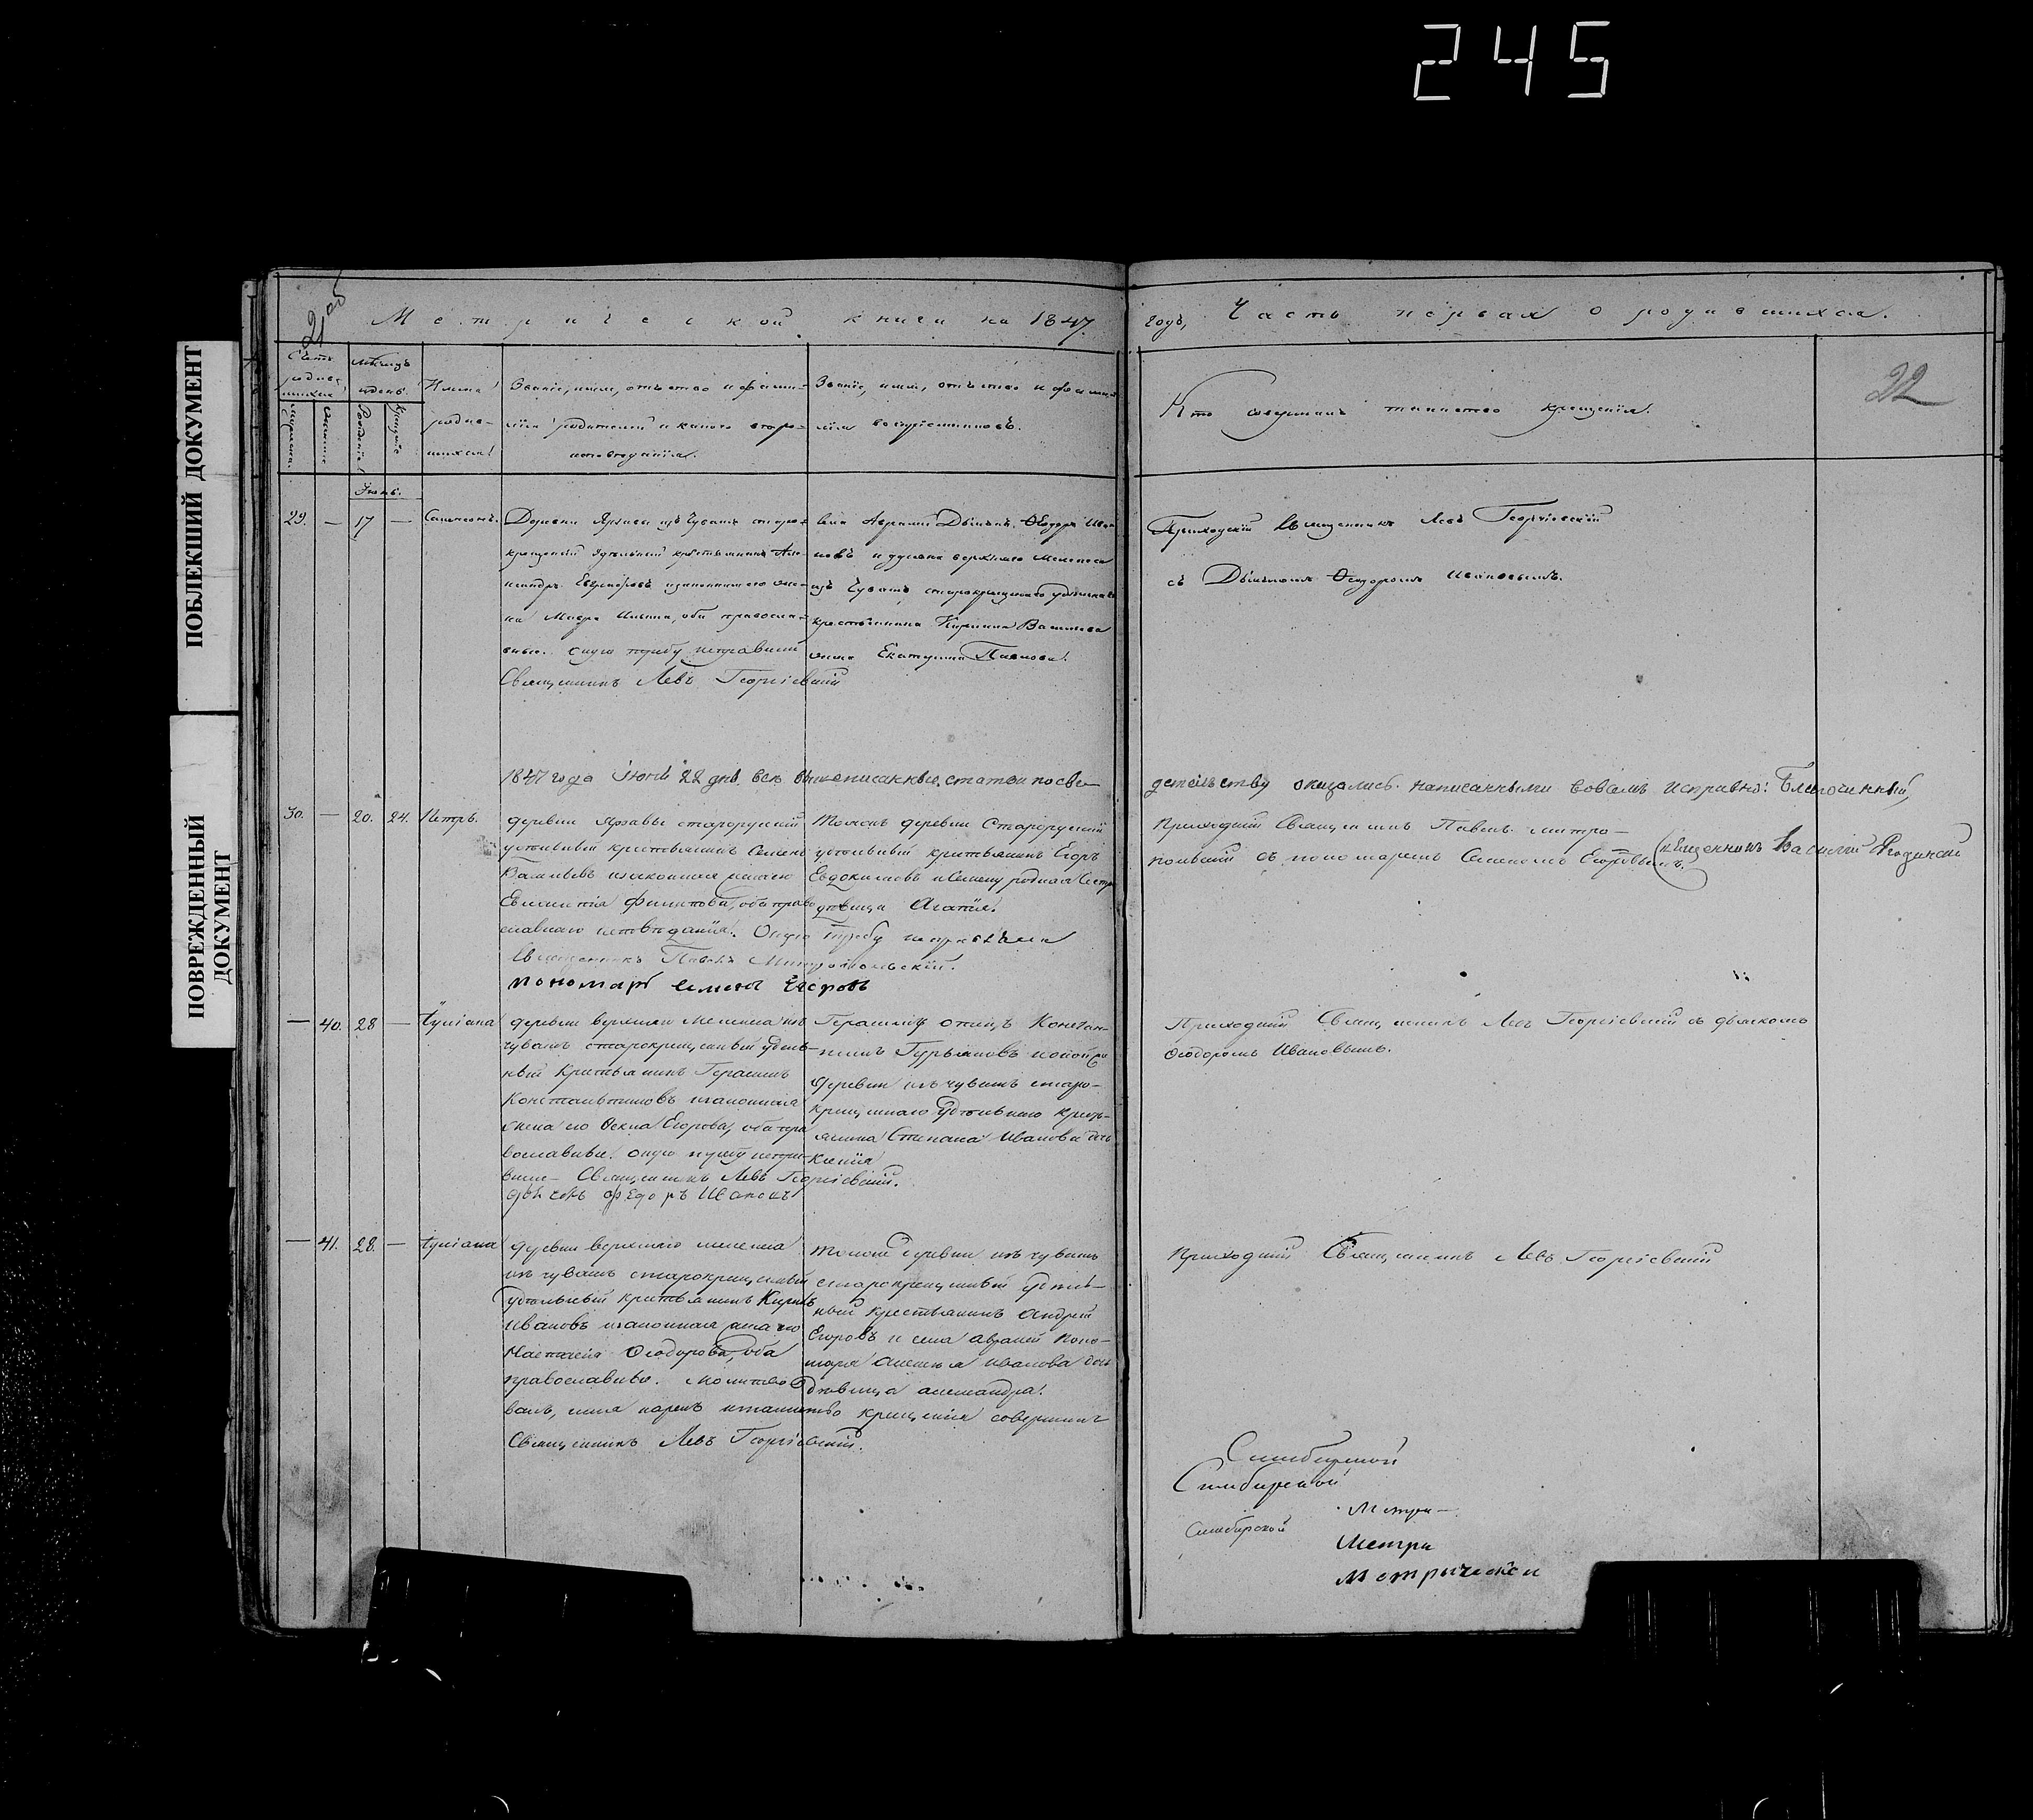 245
ПОБЛЕКШИЙ ДОКУМЕНТ
ПОВРЕЖДЕННЫЙ ДОКУМЕНТ
Метрической книги на 1847.
годъ, Часть первая о родившихся.
22
Счетъ родив-шихся
мѣсяцъ и день.
Имена родив-шихся.
Званіе, имя, отчество и фами-
лія родителей и какого вѣро-
исповѣданія.
Званіе, имя, отчество и фами-
лія воспріемниковъ.
Кто совершалъ таинство крещенія.
Рожденіе
Крещеніе
Іюнь.
29. — 17 — Сампсонъ.
Деревни Яклавы изъ Чувашъ старо-
крещеный удѣльный крестьянинъ Але-
ксандръ и законная его же-
на Мавра Ильина, оба православ-
ные. Оную требу исправилъ
Священникъ Левъ Георгіевскій
села Авралей Дьячекъ Ѳеодоръ Ива-
новъ и верхняго Мелекеса
изъ Чувашъ старокрещенаго удѣльнаго
крестьянина Кирилла Васильева
жена Екатерина Павлова.
Приходскій Священникъ Левъ Георгіевскій
съ Дьячкомъ Ѳеодоромъ Ивановымъ.
1847 года Іюня 22 дня всѣ вышеписанные статьи по сви-
детельству оказались написанными вовсемъ исправно: Благочинный,
Священникъ Василій
30. — 20. 24. Петръ.
деревни старорусскій
удѣльный крестьянинъ Семенъ
Васильевъ и законная жена его
Евгенія Филипова, оба право
славнаго исповѣданія. Оную требу исправили
Священникъ Павелъ Митропольскій.
пономарь Семенъ Егоровъ
Тояжъ деревни Старорусскій
удѣльный крестьянинъ Егоръ
Евдокимовъ и Семену родная сестра
дѣвица Агапія.
Приходскій Священникъ Павелъ Митро-
польскій съ пономаремъ Семеномъ Егоровымъ.
— 40. 28 — Іуліана
деревни верхняго Мелекеса изъ
чувашъ старокрещеный удѣль-
ный крестьянинъ Герасимъ
Константиновъ и законная
жена его Ѳекла Егорова, оба пра
вославные. Оную требу исправ
вили Священникъ Левъ Георгіевскій.
дьячекъ Федоръ Ивановъ
Герасима отецъ Констан-
тинъ Гурьяновъ и
деревни изъ чувашъ старо-
крещенаго удѣльнаго кресть-
янина Степана Иванова дочь
Ксенія
Приходскій Священникъ Левъ Георгіевскій съ дьячкомъ
Ѳеодоромъ Ивановымъ.
— 41. 28. — Іуліана
деревни верхняго мелекеса
изъ чувашъ старокрещеный
удѣльный крестьянинъ Кирилъ
Ивановъ и законная жена его
Настасья Ѳеодорова, оба
православные. Молитвово
валъ, имя нарекъ и таинство крещенія совершилъ
Священникъ Левъ Георгіевскій.
тоной деревни изъ чувашъ
старокрещеный удѣль-
ный крестьянинъ Андрей
Егоровъ и села авралей поно-
маря Алексѣя иванова дочь
дѣвица александра.
Приходскій Священникъ Левъ Георгіевскій
Симбирской
Симбирской
Симбирской
Метри-
Метри
Метрической